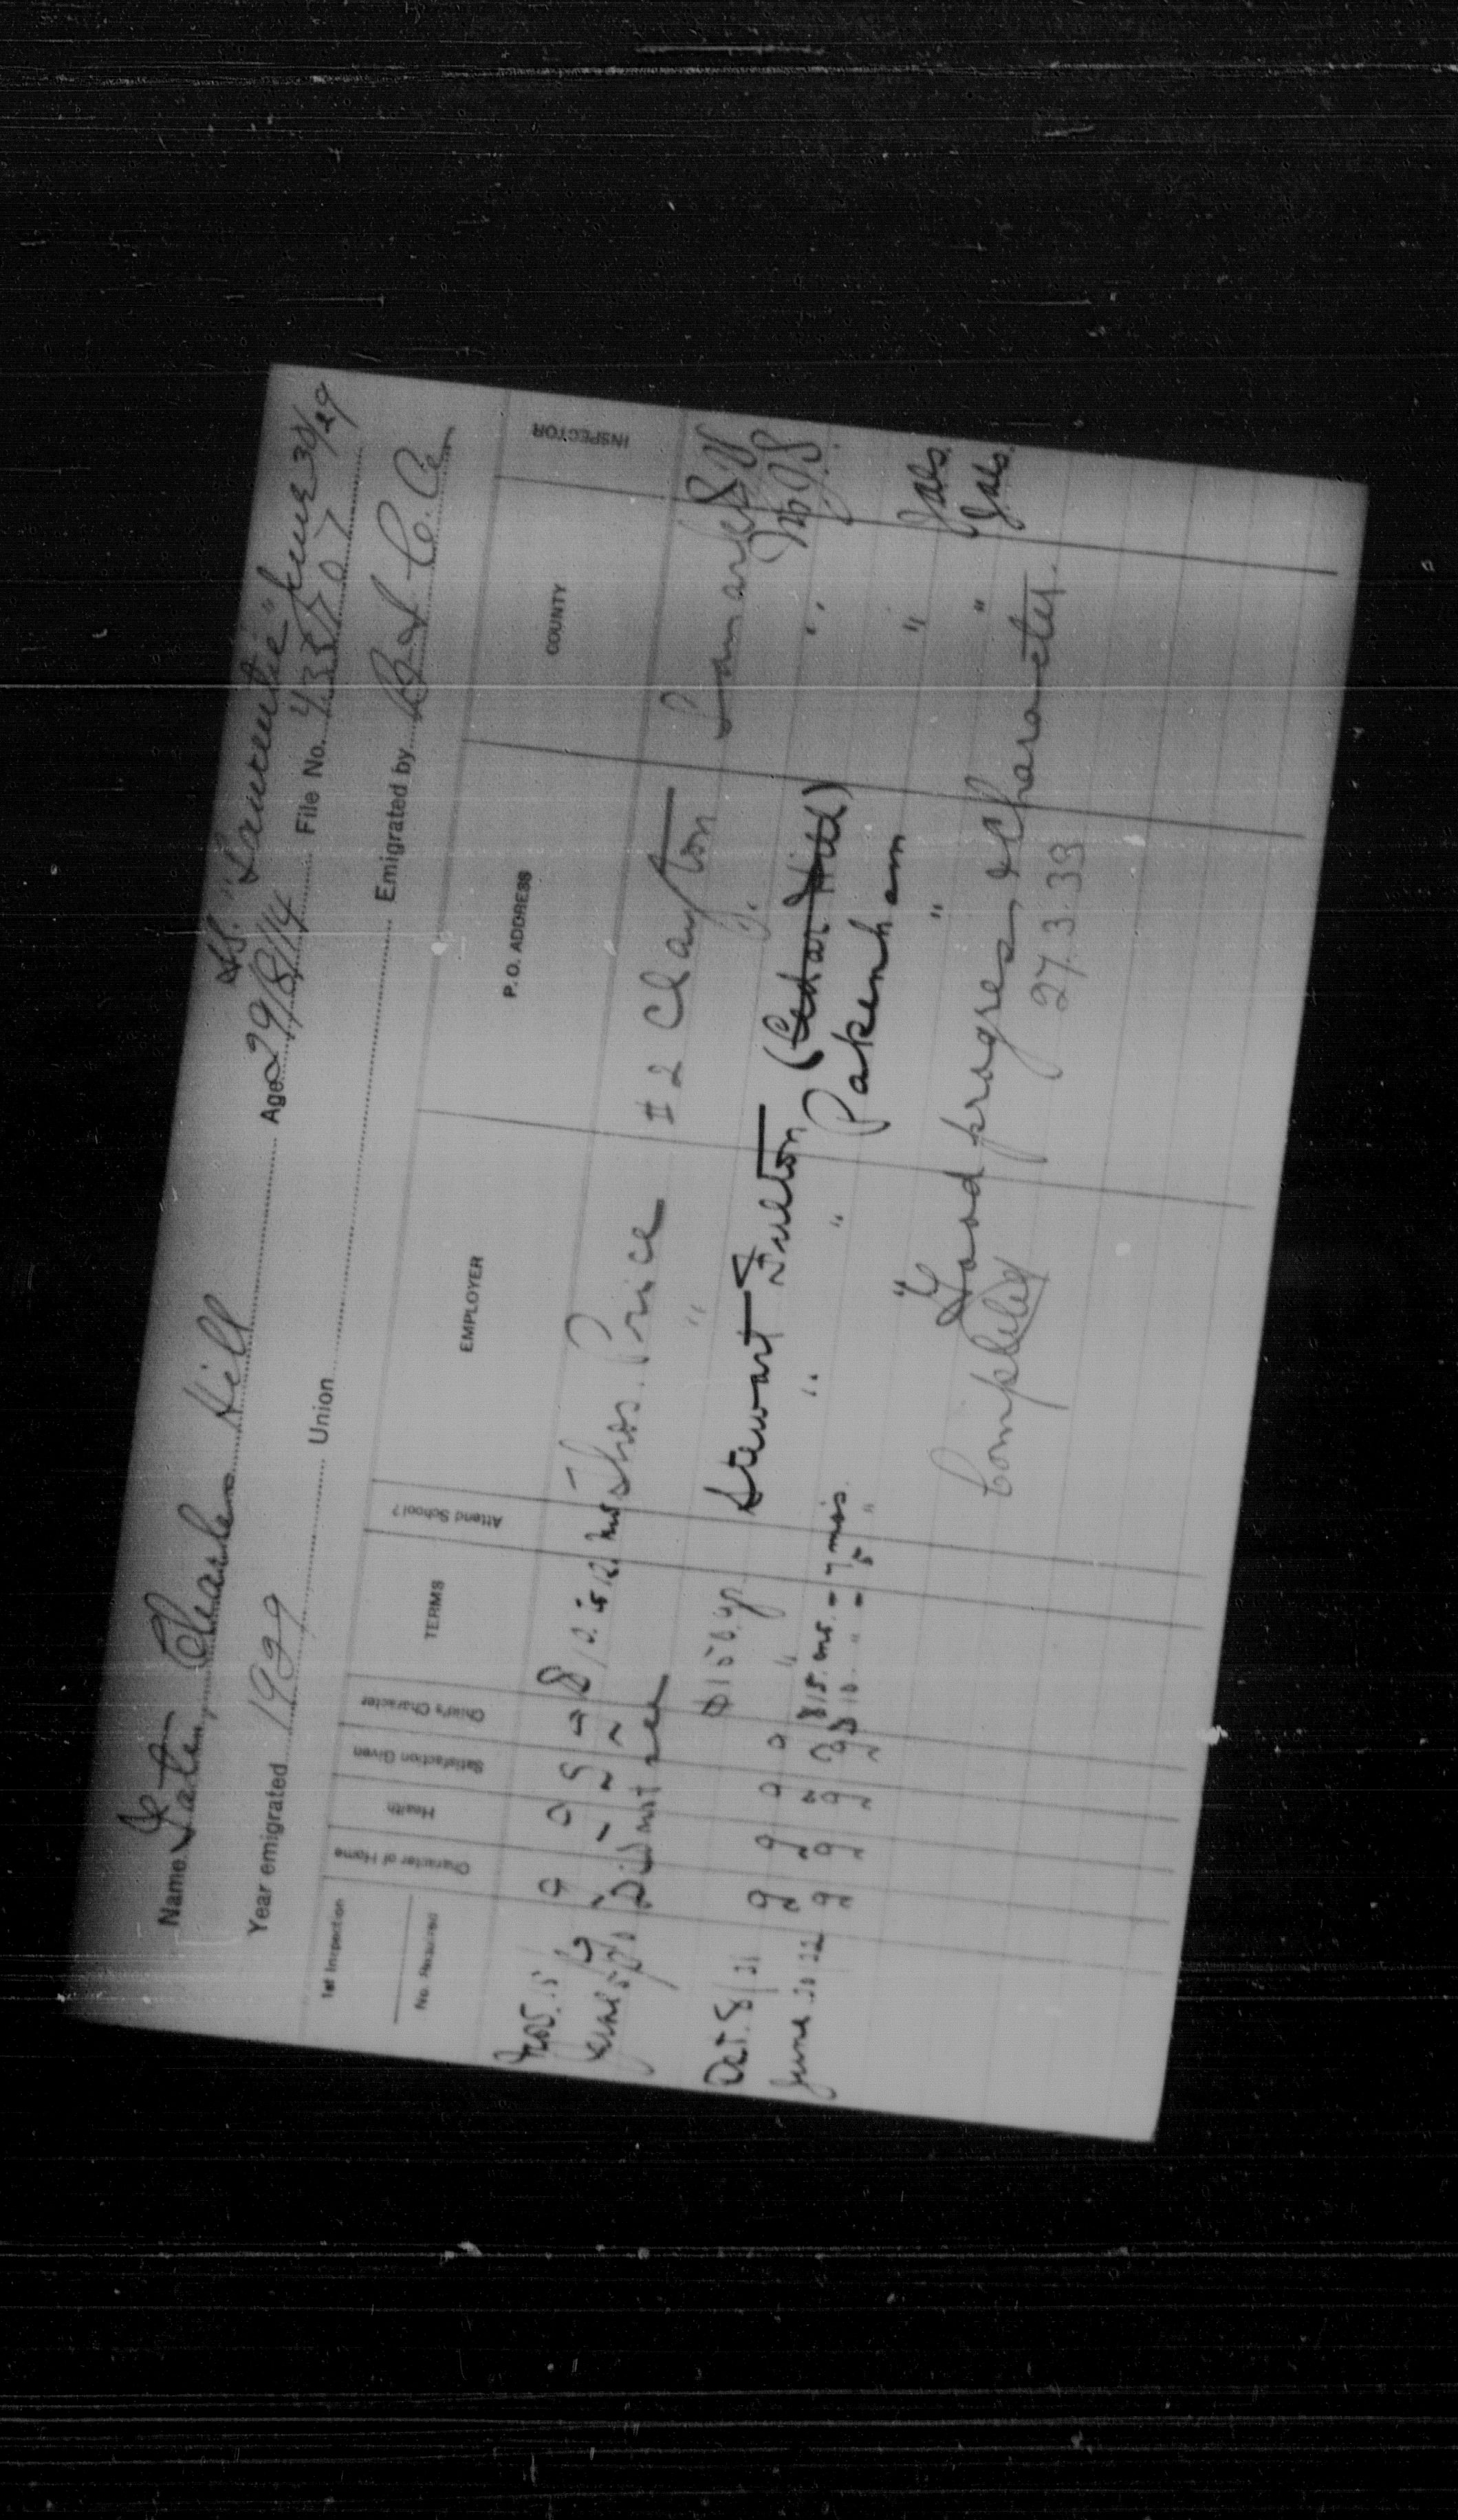 S.S. "Laurentic" June 30/29
Name Charles Hill Age 29/8/14 File No. 433707
Year emigrated 1929 Union Emigrated by
1st Inspection
No. Required
Character of Home
Health
Satisfaction Given
Child's Character
TERMS
Attend School?
EMPLOYER
P.O. ADDRESS
COUNTY
INSPECTOR
Thos. Price #2 Clayton Lanark
Did not see "
Oct. 8/31 g g g g $150. yr. Stewart Fulton (Cedar Hill)
June 20/32 g g g g " " " Pakenham
$15. mo. - 7 mos.
$10 " - 5 " " " "
Good progress & Character.
Completed 27.3.33